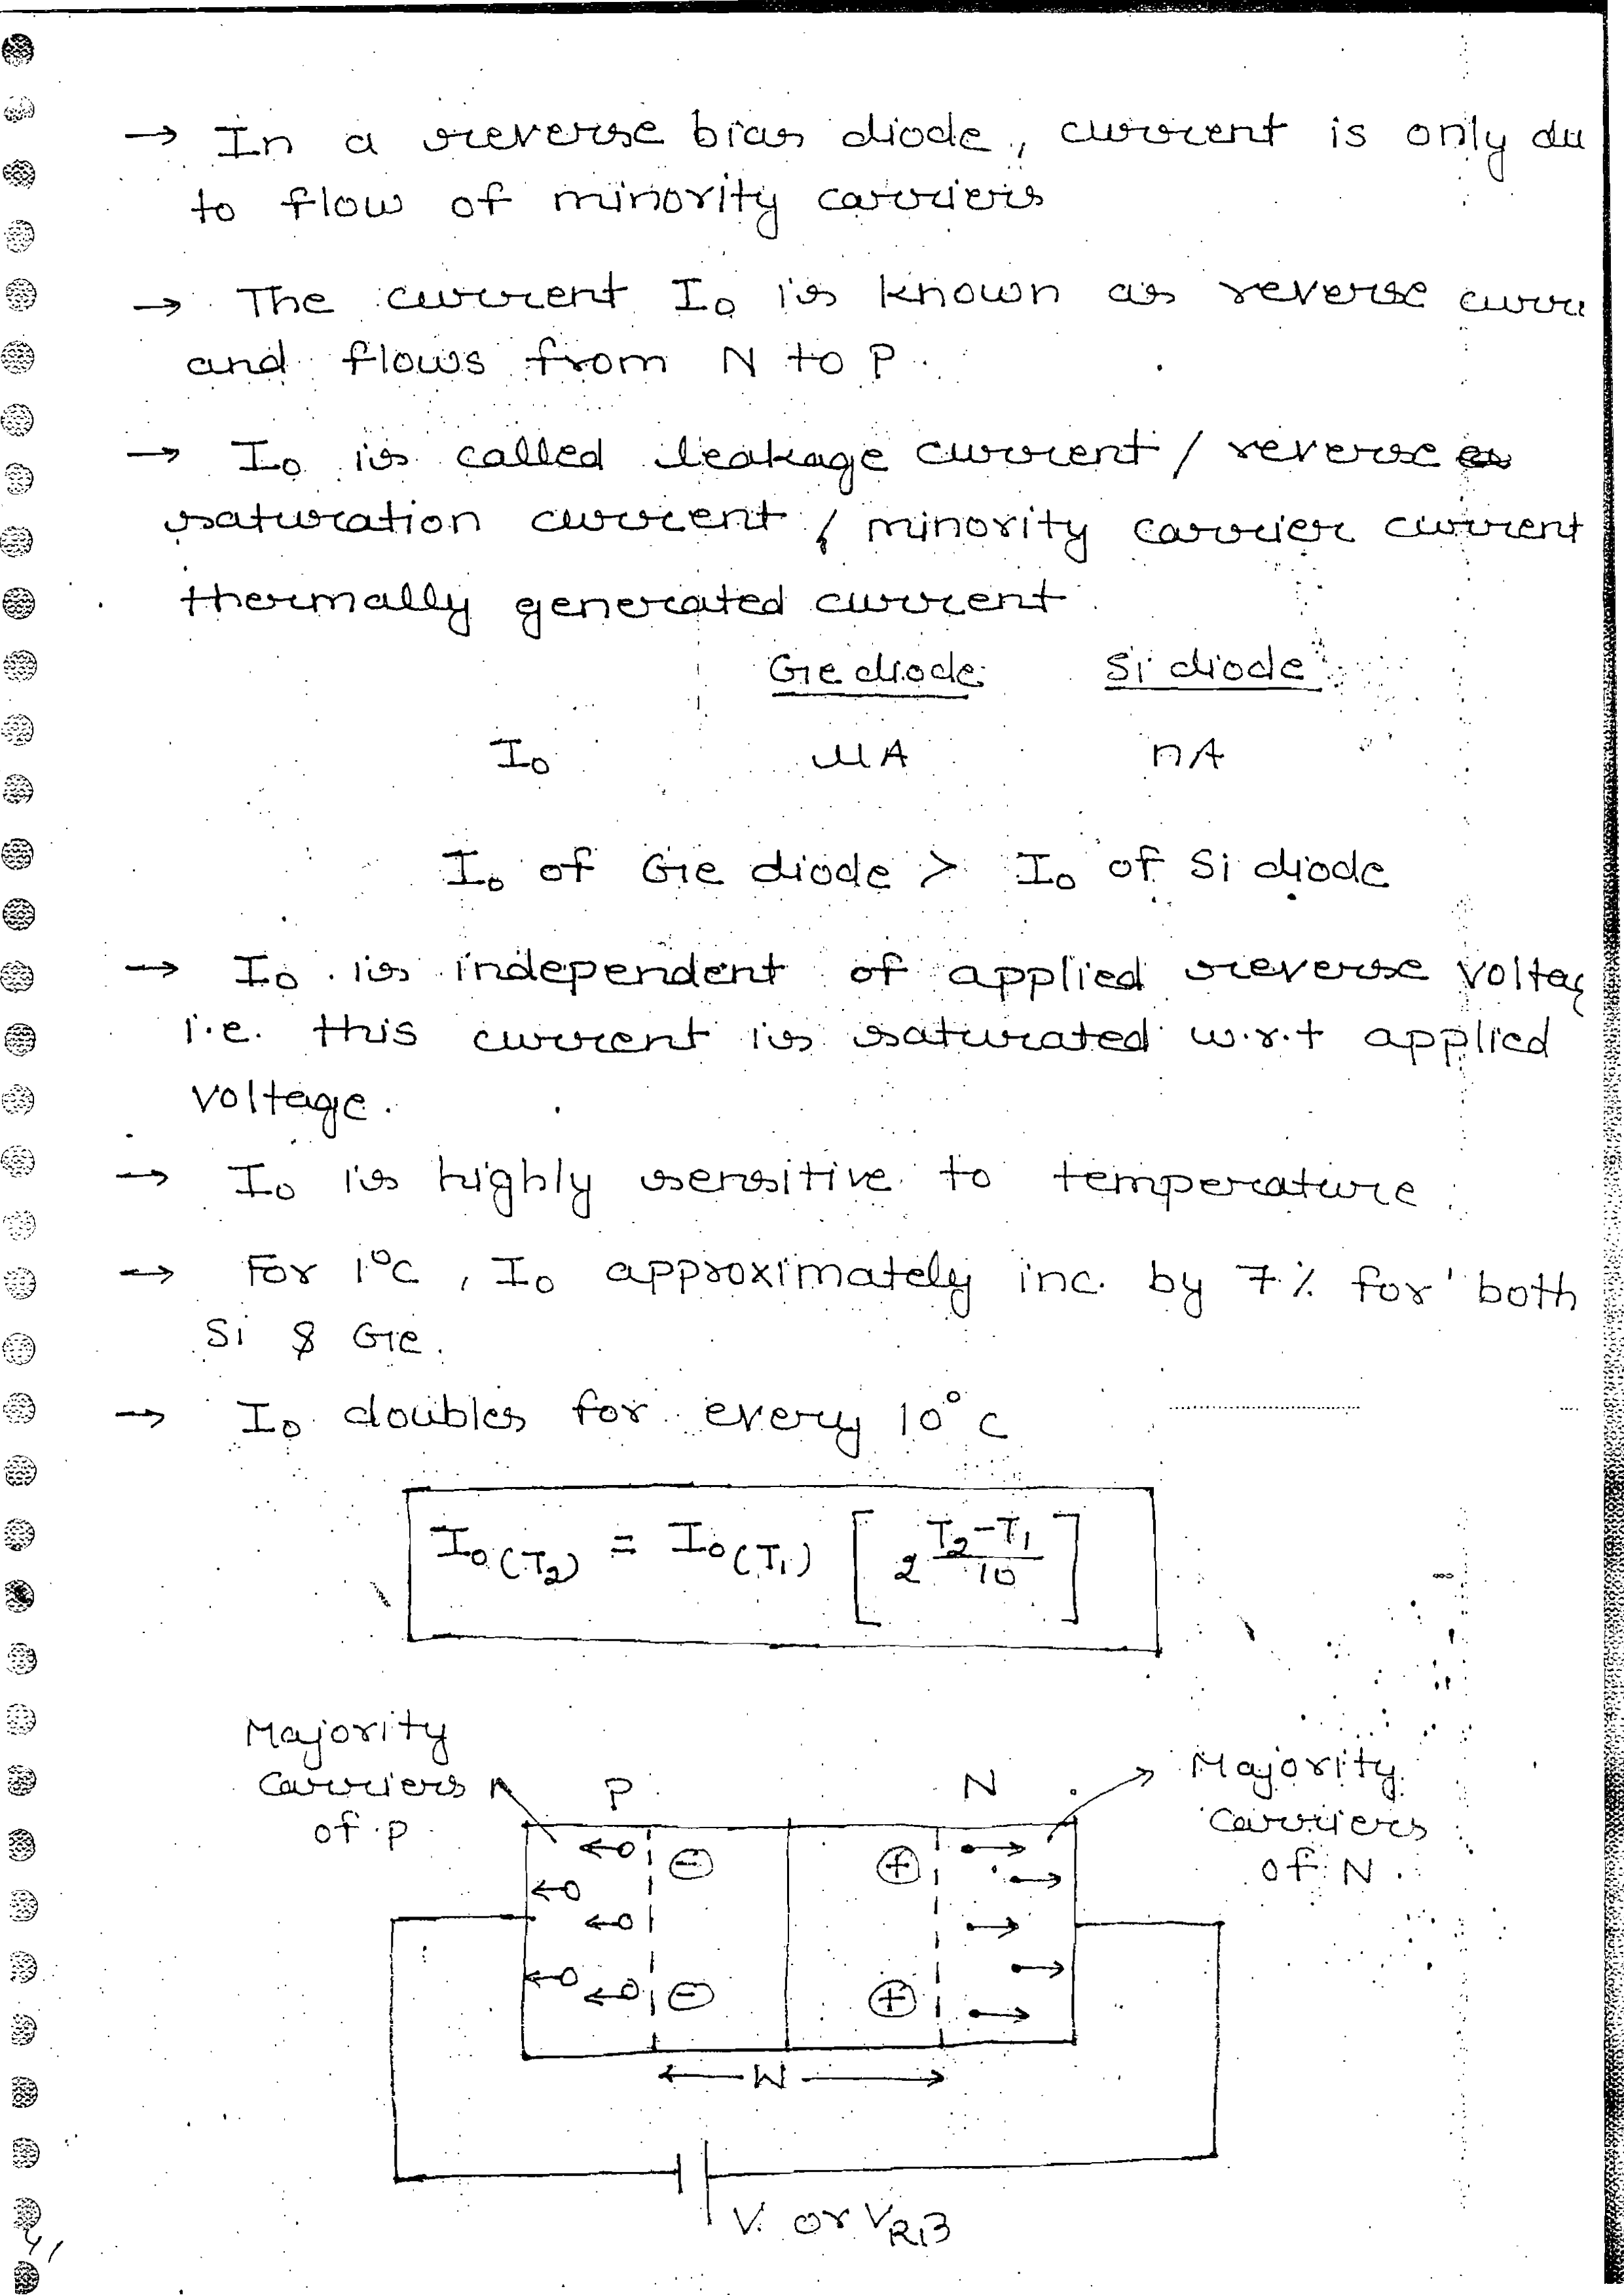 → In a reverse bias diode, current is only du
to flow of minority carriers
→ The current I₀ is known as reverse curre
and flows from N to P.
→ I₀ is called leakage current / reverse
saturation current / minority carrier current
thermally generated current.
Ge diode Si diode
I₀ μA nA
I₀ of Ge diode > I₀ of Si diode
→ I₀ is independent of applied reverse voltag
i.e. this current is saturated w.r.t applied
voltage.
→ I₀ is highly sensitive to temperature.
→ For 1°C, I₀ approximately inc. by 7% for both
Si & Ge.
→ I₀ doubles for every 10°C
I₀(T₂) = I₀(T₁) [2^((T₂-T₁)/10)]
Majority
Carriers
of P
P N
Majority
Carriers
of N.
W
V or V_RB
41